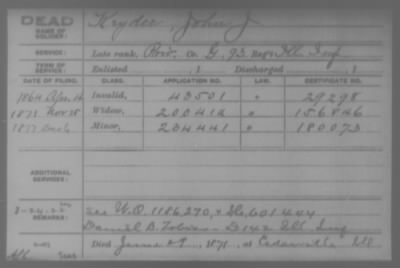 DEAD
NAME OF SOLDIER:
Kryder, John J
SERVICE:
Late rank, Priv. Co. G, 93 Reg't Ill Inf
TERM OF SERVICE:
Enlisted , 1 Discharged , 1
DATE OF FILING. CLASS. APPLICATION NO. LAW. CERTIFICATE NO.
1864 Apr. 14 Invalid, 43501 " 29298
1871 Nov 28 Widow, 200412 " 156846
1877 Minor, 234441 " 180073
ADDITIONAL SERVICES:
REMARKS:
see W.O. 1186,270, & 601444
Daniel B. - D 142 Ill Inf
Died 1871, at Cedarville Ill